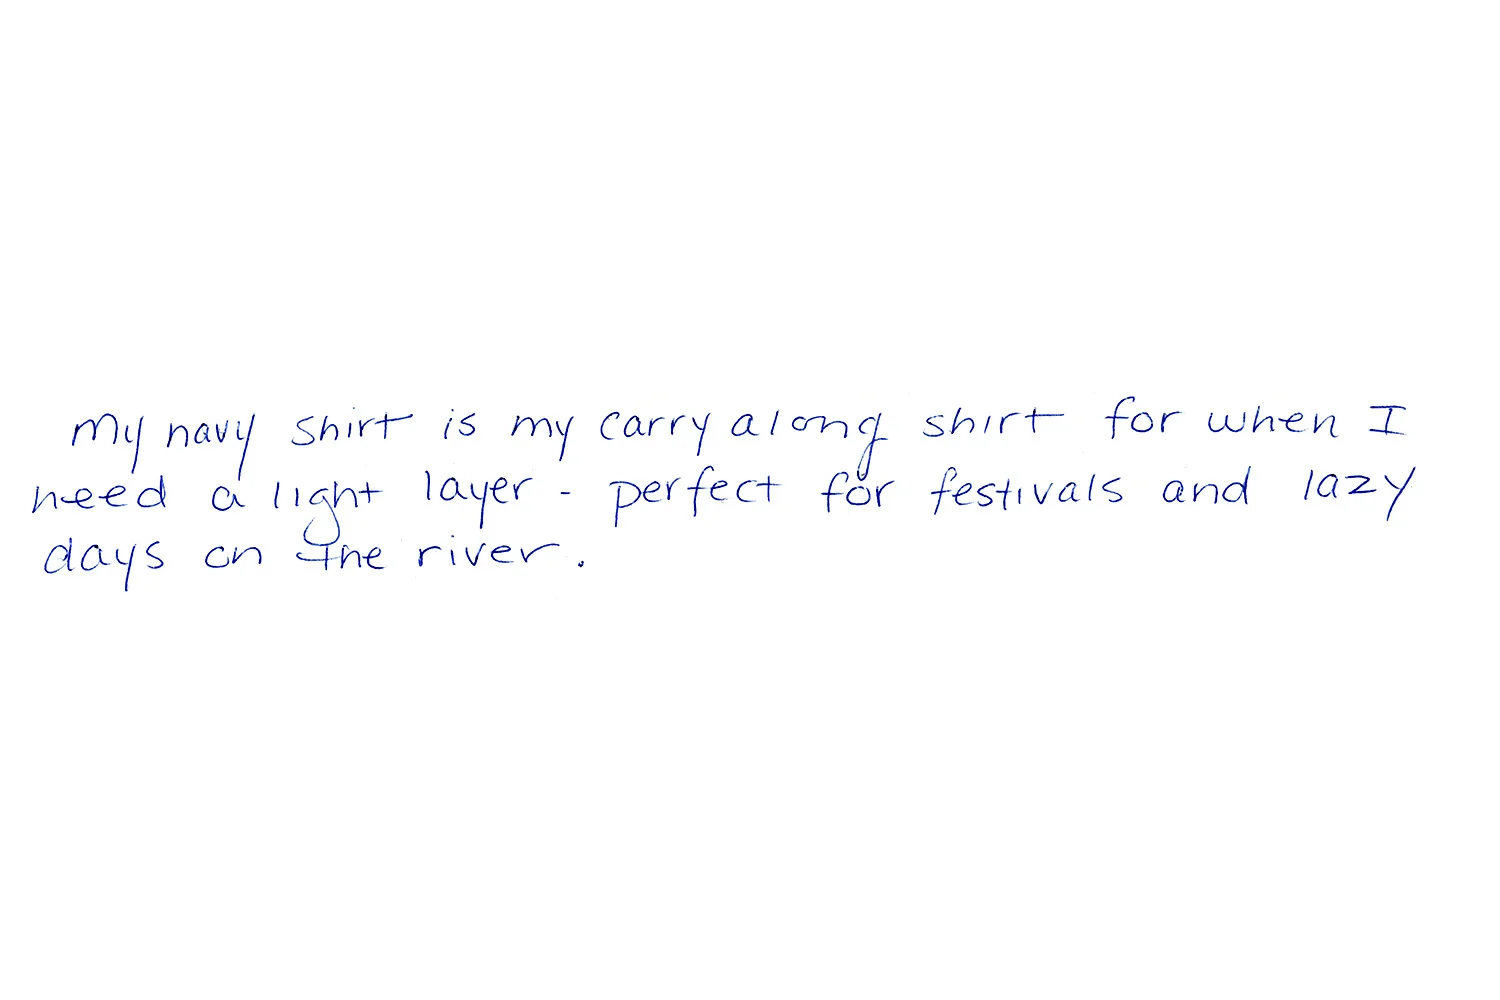 My navy shirt is my carry along shirt for when I
need a light layer - perfect for festivals and lazy
days on the river.